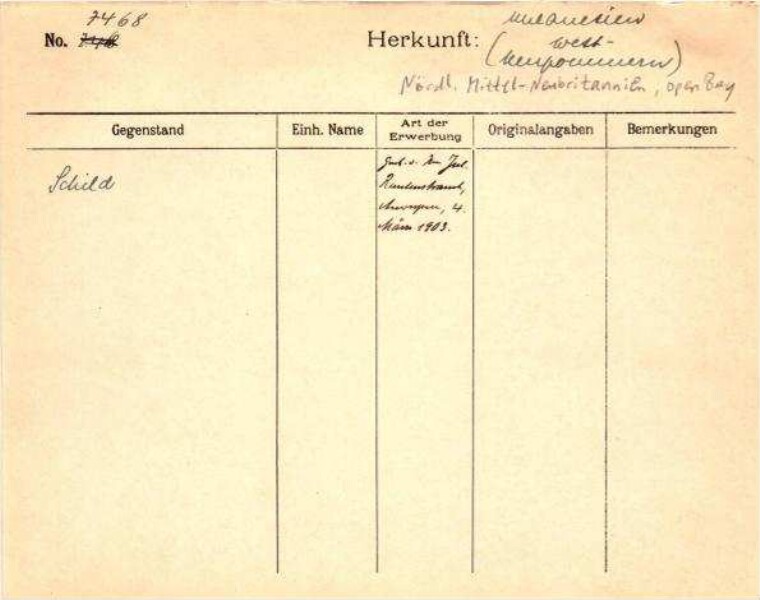 7468
No. 748
Herkunft: Melanesien
(West-
Neupommern)
Nördl. Mittel-Neubritannien, Open Bay
Gegenstand
Einh. Name
Art der
Erwerbung
Originalangaben
Bemerkungen
Schild
Jul.
4.
März 1903.